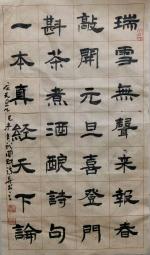 瑞雪無聲來報春
敲開元旦喜登門
斟茶煮酒釀詩句
一本真經天下論